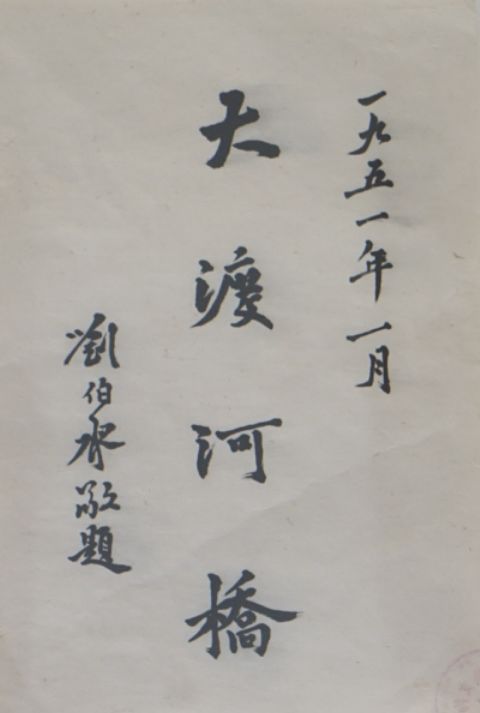 一九五一年一月
天渡河橋
劉伯承敬題